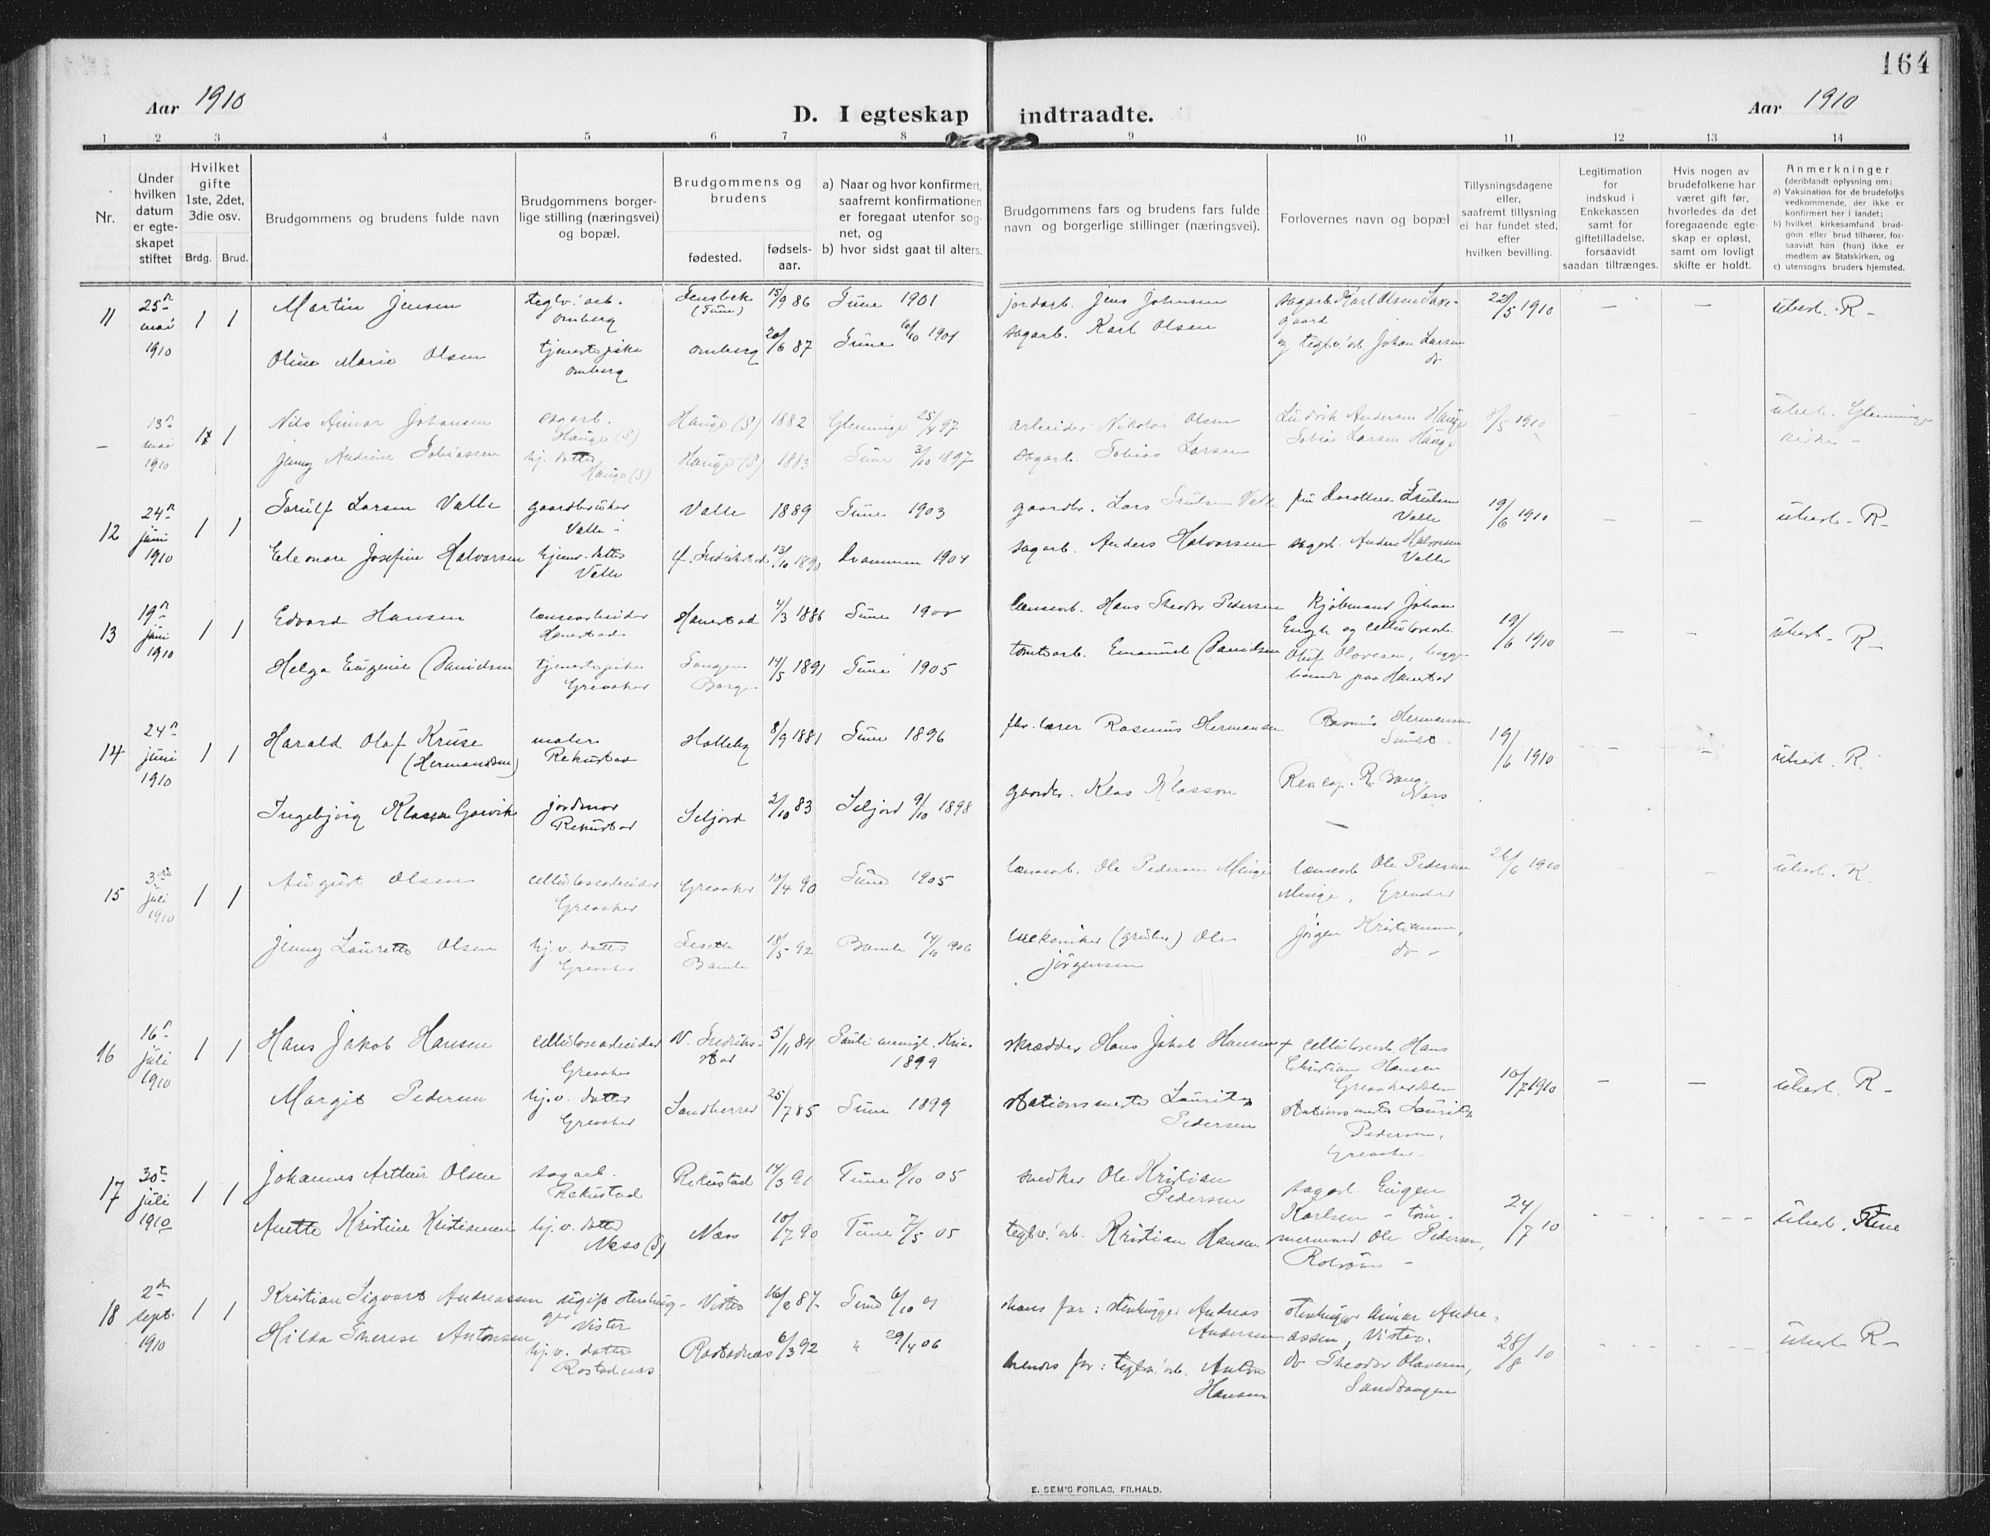 164
Aar 1910
D. I egteskap indtraadte.
Aar 1910
1 2 3 4 5 6 7 8 9 10 11 12 13 14
Nr.
Under hvilken datum er egteskapet stiftet
Hvilket gifte 1ste, 2det, 3die osv.
Brdg. Brud.
Brudgommens og brudens fulde navn
Brudgommens borgerlige stilling (næringsvei) og bopæl.
Brudgommens og brudens
fødested.
fødselsaar.
a) Naar og hvor konfirmert, saafremt konfirmationen er foregaat utenfor sognet, og
b) hvor sidst gaat til alters.
Brudgommens fars og brudens fars fulde navn og borgerlige stillinger (næringsvei).
Forlovernes navn og bopæl
Tillysningsdagene eller, saafremt tillysning ei har fundet sted, efter hvilken bevilling.
Legitimation for indskud i Enkekassen samt for giftetilladelse, forsaavidt saadan tiltrænges.
Hvis nogen av brudefolkene har været gift før, hvorledes da det foregaaende egteskap er opløst, samt om lovligt skifte er holdt.
Anmerkninger (deriblandt oplysning om:
a) Vaksination for de brudefolks vedkommende, der ikke er konfirmert her i landet;
b) hvilket kirkesamfund brudgom eller brud tilhører, forsaavidt han (hun) ikke er medlem av Statskirken, og
c) utensogns bruders hjemsted.
11 25n mai 1910 1 1 Martin Jensen teglv. arb. Omberg (Tune) 15/9 86 Tune 1901 jordarb. Jens Johnsen sagarb. Karl Olsen 22/5 1910 — — uhert. R —
Oline Marie Olsen tjenestepike Omberg Omberg 20/6 87 Tune 6/10 1901 sagarb. Karl Olsen og teglv. arb. Johan Larsen do
— 13n mai 1910 1 Nils Aimar Johansen sagarb. Hauge (S) Hauge (S) 1882 Glemminge 25/4 97 arbeider Nikolai Olsen Ludvik Andersen Hauge 8/5 1910 — — uhert. Glemminge kirke —
Jenny Andrine Tobiassen hj. datter Hauge (S) Hauge (S) 1883 Tune 3/10 1897 sagarb. Tobias Larsen Tobias Larsen Hauge
12 24n juni 1910 1 1 Torulf Larsen Valle gaardbruker Valle Valle 1889 Tune 1903 gaardbr. Lars Valle Valle 19/6 1910 — — uhert. R —
Eleonore Josefine Halvorsen hjemv. datter Valle Fredrikstad 13/10 1890 Drammen 1904 sagarb. Anders Halvorsen sagarb. Anders Halvorsen Valle
13 19n juni 1910 1 1 Edvard Hansen lænsearbeider Hanestad Hanestad 4/3 1886 Tune 1900 lænsearb. Hans Theodor Pedersen Kjøbmand Johan Engh og cellulosearb. 19/6 1910 — — uhert. R —
Helga Eugenie Danielsen tjenestepike Greaaker Borge 14/5 1891 Tune 1905 tomtearb. Emanuel Danielsen Oluf Olavesen, begge boende paa Hanestad
14 24n juni 1910 1 1 Harald Olaf Kruse (Hermansen) maler Rekustad Holleby 8/9 1881 Tune 1896 fhv. lærer Rasmus Hermansen Rasmus Hermansen 19/6 1910 — — uhert. R.
Ingebjörg Klassen Gorvik jordmor Rekustad Seljord 2/10 83 Seljord 9/10 1898 gaardbr. Klas Klasson
15 3die juli 1910 1 1 August Olsen cellulosearbeider Greaaker Greaaker 10/4 90 Tune 1905 lænsearb. Ole Pedersen Minge lænsearb. Ole Pedersen Minge, Greaaker 26/6 1910 — — uhert. R.
Jenny Laurette Olsen hj.v. datter Greaaker Bamle 18/5 92 Bamle 14/10 1906 mekaniker (gruben) Ole Jørgensen Jørgen Kristiansen, do —
16 16n juli 1910 1 1 Hans Jakob Hansen cellulosearbeider Greaaker V. Fredrikstad 5/11 84 Pauli menigh. Kria. 1899 skrædder Hans Jakob Hansen + cellulosearb. Hans Christian Hansen Greaakerdalen 10/7 1910 — — uhert. R —
Margit Pedersen hj.v. datter Greaaker Sandherred 25/7 85 Tune 1899 stationsmester Lauritz Pedersen stationsmester Lauritz Pedersen, Greaaker
17 30te juli 1910 1 1 Johannes Arthur Olsen sagarb. Rekustad Rekustad 14/3 91 Tune 8/10 05 snedker Ole Kristian Pedersen sagarb. Eugen Karlsen — tömmermand Ole Pedersen, Rolvsöy — 24/7 10 uhert. Tune
Anette Kristine Kristiansen hj.v. datter Næss (S) Næss 10/7 90 Tune 7/5 05 teglv. arb. Kristian Hansen
18 2den sept. 1910 1 1 Kristian Sigvart Andreassen ugift stenhugger Vister Vister 16/2 87 Tune 6/10 01 hans far: stenhugger Andreas Andersen stenhugger Aimar Andreassen, Vister. 28/8 10 uhert R —
Hilda Therese Antonsen hj.v. datter Rostadnæs Rostadnæs 6/3 92 " 29/4 06 hendes far: teglv. arb. Anton Hansen do Theodor Olavesen, Sandtangen
E. SEM'S FORLAG, FR.HALD.